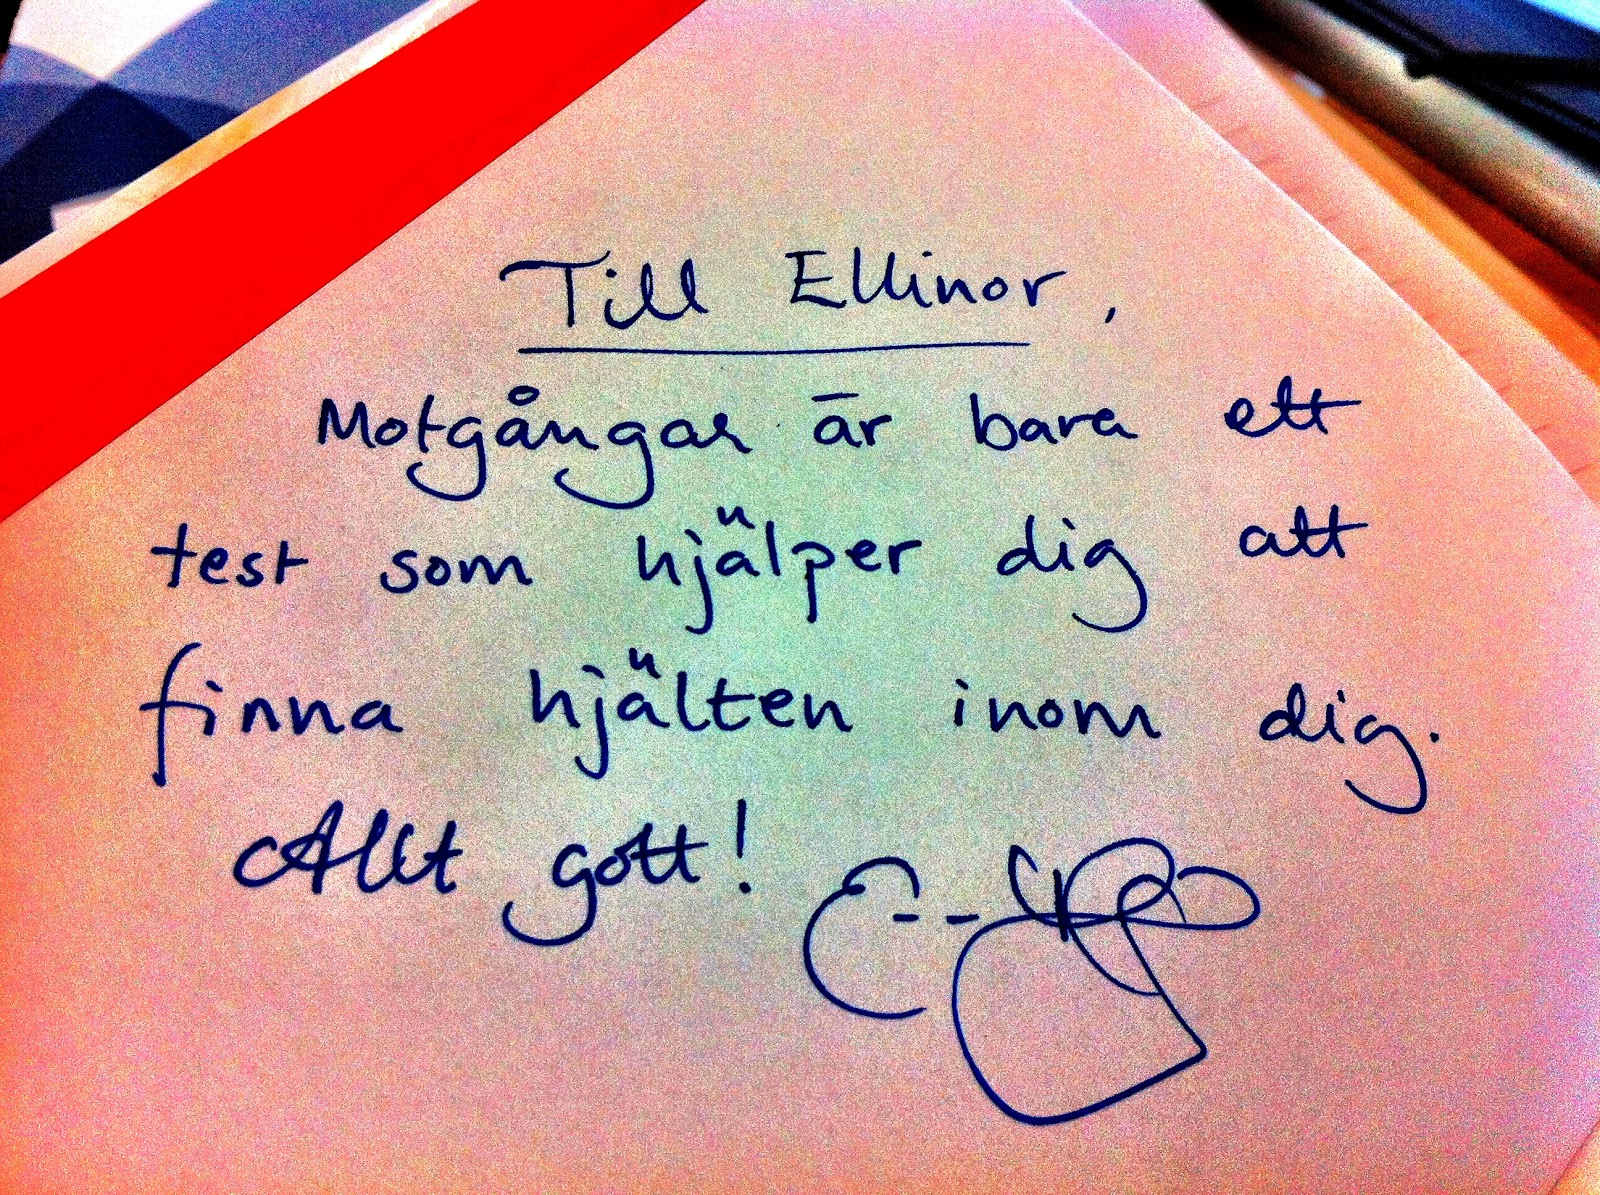 Till Ellinor,
Motgångar är bara ett
test som hjälper dig att
finna hjälten inom dig.
Allt gott!